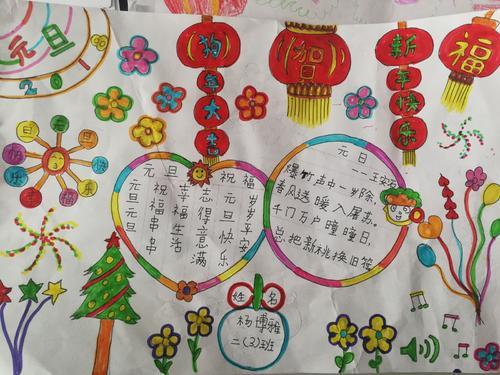 元旦
201
狗年大吉
贺
新年快乐
福
元旦祝福
元旦元旦
祝福串串
幸福生活
志得意满
元旦快乐
岁岁平安
元旦
——王安石
爆竹声中一岁除,
春风送暖入屠苏.
千门万户瞳瞳日,
总把新桃换旧符.
姓名
杨博雅
二(3)班